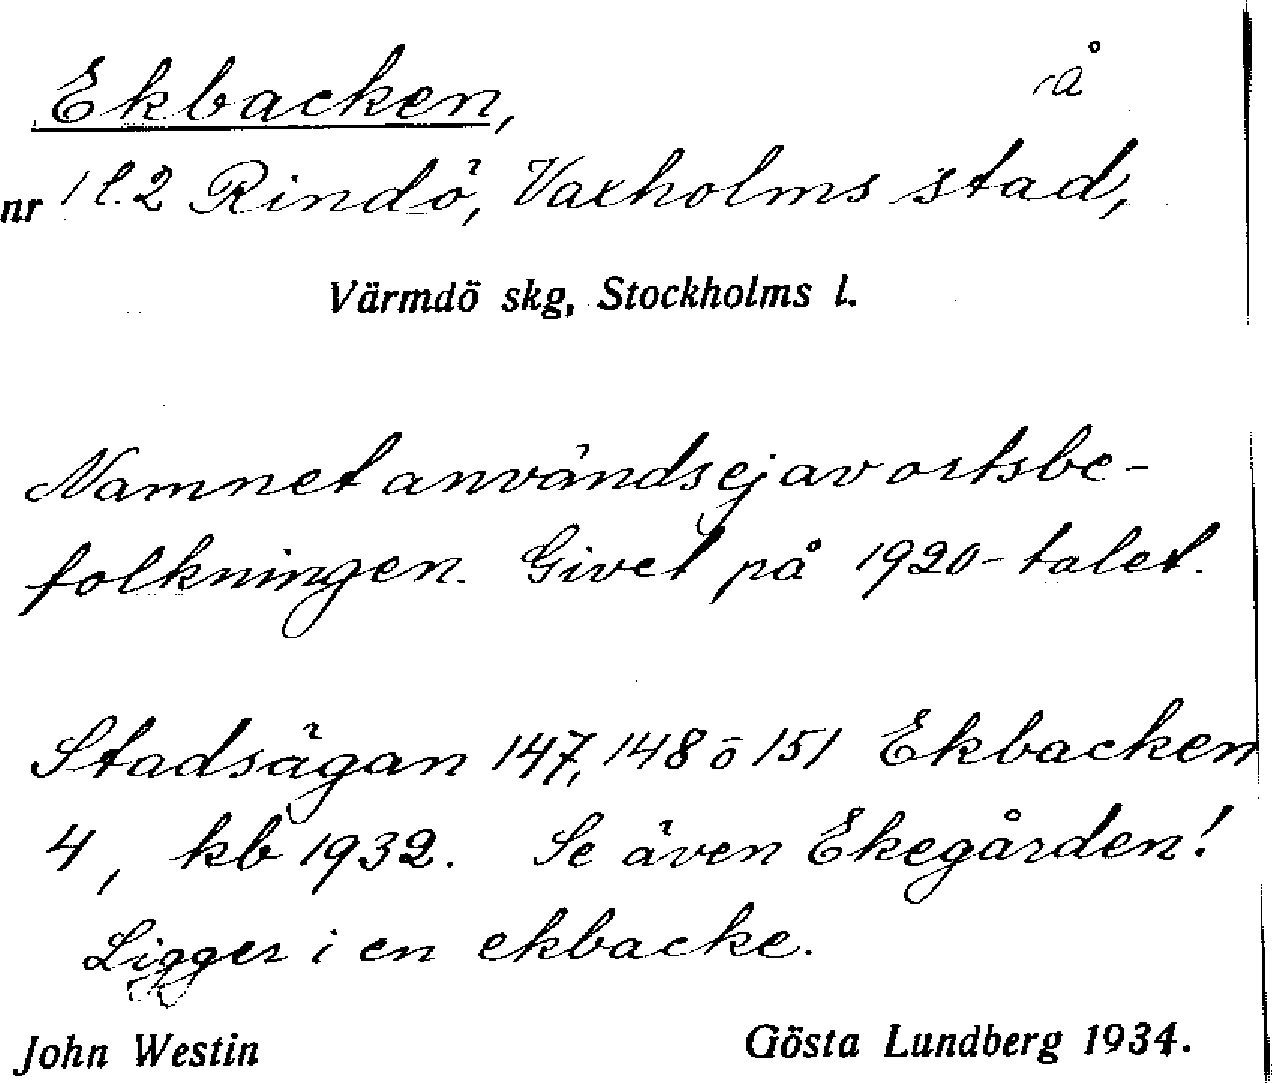 Ekbacken, å
nr 1 l. 2 Rindö, Vaxholms stad,
Värmdö skg, Stockholms l.
Namnet användes ej av ortsbe-
folkningen. Givet på 1920-talet.
Stadsägan 147, 148 o 151 Ekbacken
4, kb 1932. Se även Ekegården!
Ligger i en ekbacke.
John Westin Gösta Lundberg 1934.